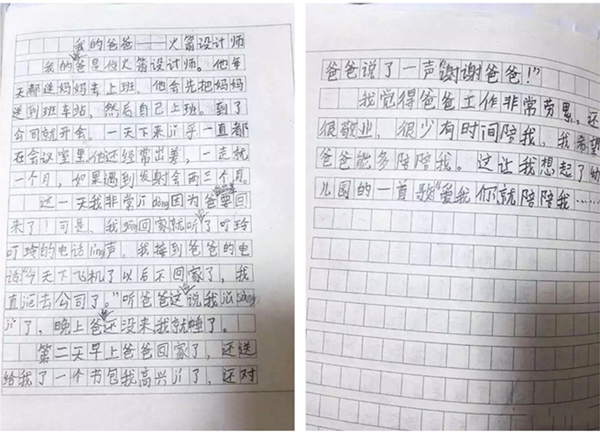 我的爸爸——火箭设计师
我的爸是位火箭设计师。他每
天都送妈妈去上班，他会先把妈妈
送到班车站，然后自己上班。到了
公司就开会。一天下来jī乎一直都
在会议室里他还经常出差，一走就
一个月，如果遇到发射会两三个月。
这一天我非常jī dòng因为爸要回
来了！可是，我回家就听了叮玲
叮玲的电话líng声，我接到爸爸的电
话“今天下飞机了以后不回家了，我
直接去公司了。”听爸爸这说我
jí了，晚上爸还没来我就睡了。
第二天早上爸爸回家了，还送
给我了一个书包我高兴jí了，还对
爸爸说了一声“谢谢爸爸！”
我觉得爸爸工作非常劳累，还
很敬业，很少有时间陪我，我希望
爸爸能多陪陪我。这让我想起了幼
儿园的一首歌“爱我你就陪陪我……